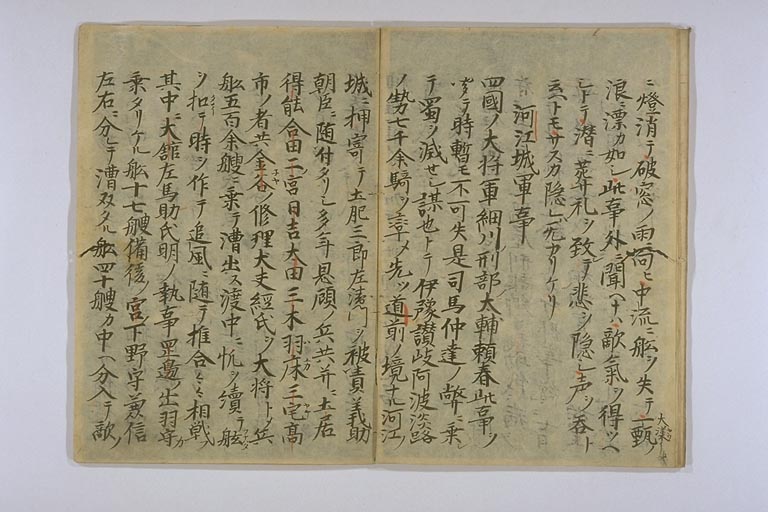 ニ燈消テ破窓ノ雨荷ヒ中流ニ舩ヲ失テ一瓢ノ
浪ニ漂カ如シ此事外ニ聞ヘナハ敵ニ氣ヲ得ツヘ
シトテ潜ニ葬礼ヲ致テ悲ヲ隠シ声ヲ呑ト
云ヘトモサスカ隠レ无カリケリ
河江城軍事
四國ノ大将軍細川刑部大輔頼春此事ヲ
テ時暫モ不可失是司馬仲達ノ弊ニ乗
テ蜀ヲ滅セシ謀也トテ伊豫讃岐阿波淡路
ノ勢七千余騎ヲ メ先ツ道前ノ境ナル河江ノ
城ニ押寄テ土肥三郎左衛門ヲ被責義助
朝臣ニ随付タリシ多年恩顧ノ兵共并ニ土居
得能合田二宮日吉太田三木羽床三宅高
市ノ者共金谷修理大夫経氏ヲ大将トメ兵
舩五百余艘ニ乗テ漕出ス渡中ニ 續テ舷
ヲ扣テ時ヲ作テ追風ニ随テ推合々々相戦
其中ニ大舘左馬助氏明ノ執事 邉ノ出羽守カ
乗タリケル舩十七艘備後ノ宮下野守兼信
左右ニ分レテ漕双タル舩四十艘カ中ヘ分入テ敵ノ